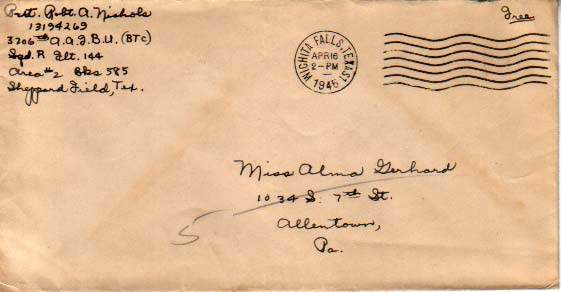 Pvt. Robt. A. Nichols
13194269
3706th A.A.F.B.U. (BTC)
Sqd. R Flt. 144
Area #2 Bks 585
Sheppard Field, Tex.
Free
WICHITA FALLS, TEXAS
APR 16
2-PM
1945
Miss Alma Gerhard
1034 S. 7th St.
Allentown,
Pa.
5